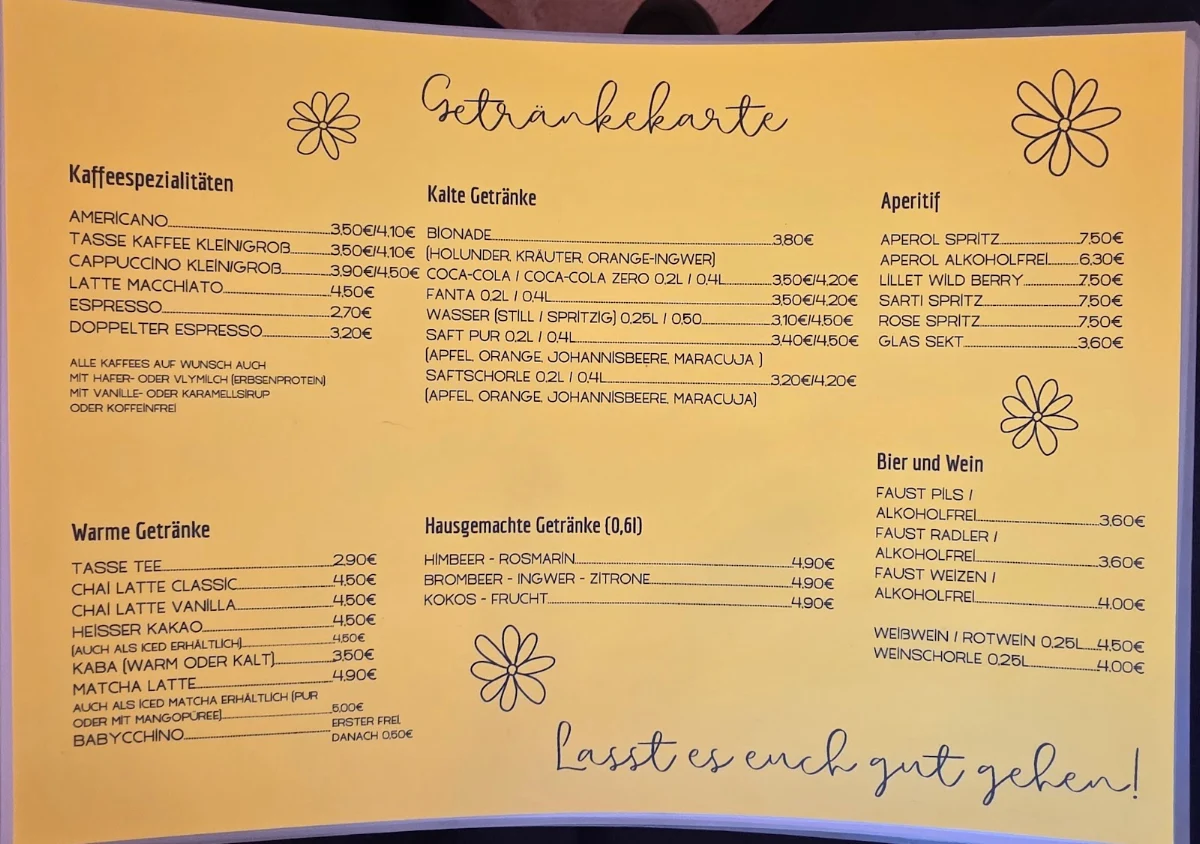 Getränkekarte
Kaffeespezialitäten
AMERICANO 3,50€/4,10€
TASSE KAFFEE KLEIN/GROß 3,50€/4,10€
CAPPUCCINO KLEIN/GROß 3,90€/4,50€
LATTE MACCHIATO 4,50€
ESPRESSO 2,70€
DOPPELTER ESPRESSO 3,20€
ALLE KAFFEES AUF WUNSCH AUCH
MIT HAFER- ODER VLYMILCH (ERBSENPROTEIN)
MIT VANILLE- ODER KARAMELLSIRUP
ODER KOFFEINFREI
Kalte Getränke
BIONADE 3,80€
(HOLUNDER, KRÄUTER, ORANGE-INGWER)
COCA-COLA / COCA-COLA ZERO 0,2L / 0,4L 3,50€/4,20€
FANTA 0,2L / 0,4L 3,50€/4,20€
WASSER (STILL / SPRITZIG) 0,25L / 0,50 3,10€/4,50€
SAFT PUR 0,2L / 0,4L 3,40€/4,50€
(APFEL, ORANGE, JOHANNISBEERE, MARACUJA )
SAFTSCHORLE 0,2L / 0,4L 3,20€/4,20€
(APFEL, ORANGE, JOHANNISBEERE, MARACUJA)
Aperitif
APEROL SPRITZ 7,50€
APEROL ALKOHOLFREI 6,30€
LILLET WILD BERRY 7,50€
SARTI SPRITZ 7,50€
ROSE SPRITZ 7,50€
GLAS SEKT 3,60€
Warme Getränke
TASSE TEE 2,90€
CHAI LATTE CLASSIC 4,50€
CHAI LATTE VANILLA 4,50€
HEISSER KAKAO 4,50€
(AUCH ALS ICED ERHÄLTLICH) 4,50€
KABA (WARM ODER KALT) 3,50€
MATCHA LATTE 4,90€
AUCH ALS ICED MATCHA ERHÄLTLICH (PUR
ODER MIT MANGOPÜREE) 5,00€
BABYCCHINO ERSTER FREI,
DANACH 0,50€
Hausgemachte Getränke (0,6l)
HIMBEER - ROSMARIN 4,90€
BROMBEER - INGWER - ZITRONE 4,90€
KOKOS - FRUCHT 4,90€
Bier und Wein
FAUST PILS /
ALKOHOLFREI 3,60€
FAUST RADLER /
ALKOHOLFREI 3,60€
FAUST WEIZEN /
ALKOHOLFREI 4,00€
WEIßWEIN / ROTWEIN 0,25L 4,50€
WEINSCHORLE 0,25L 4,00€
Lasst es euch gut gehen!